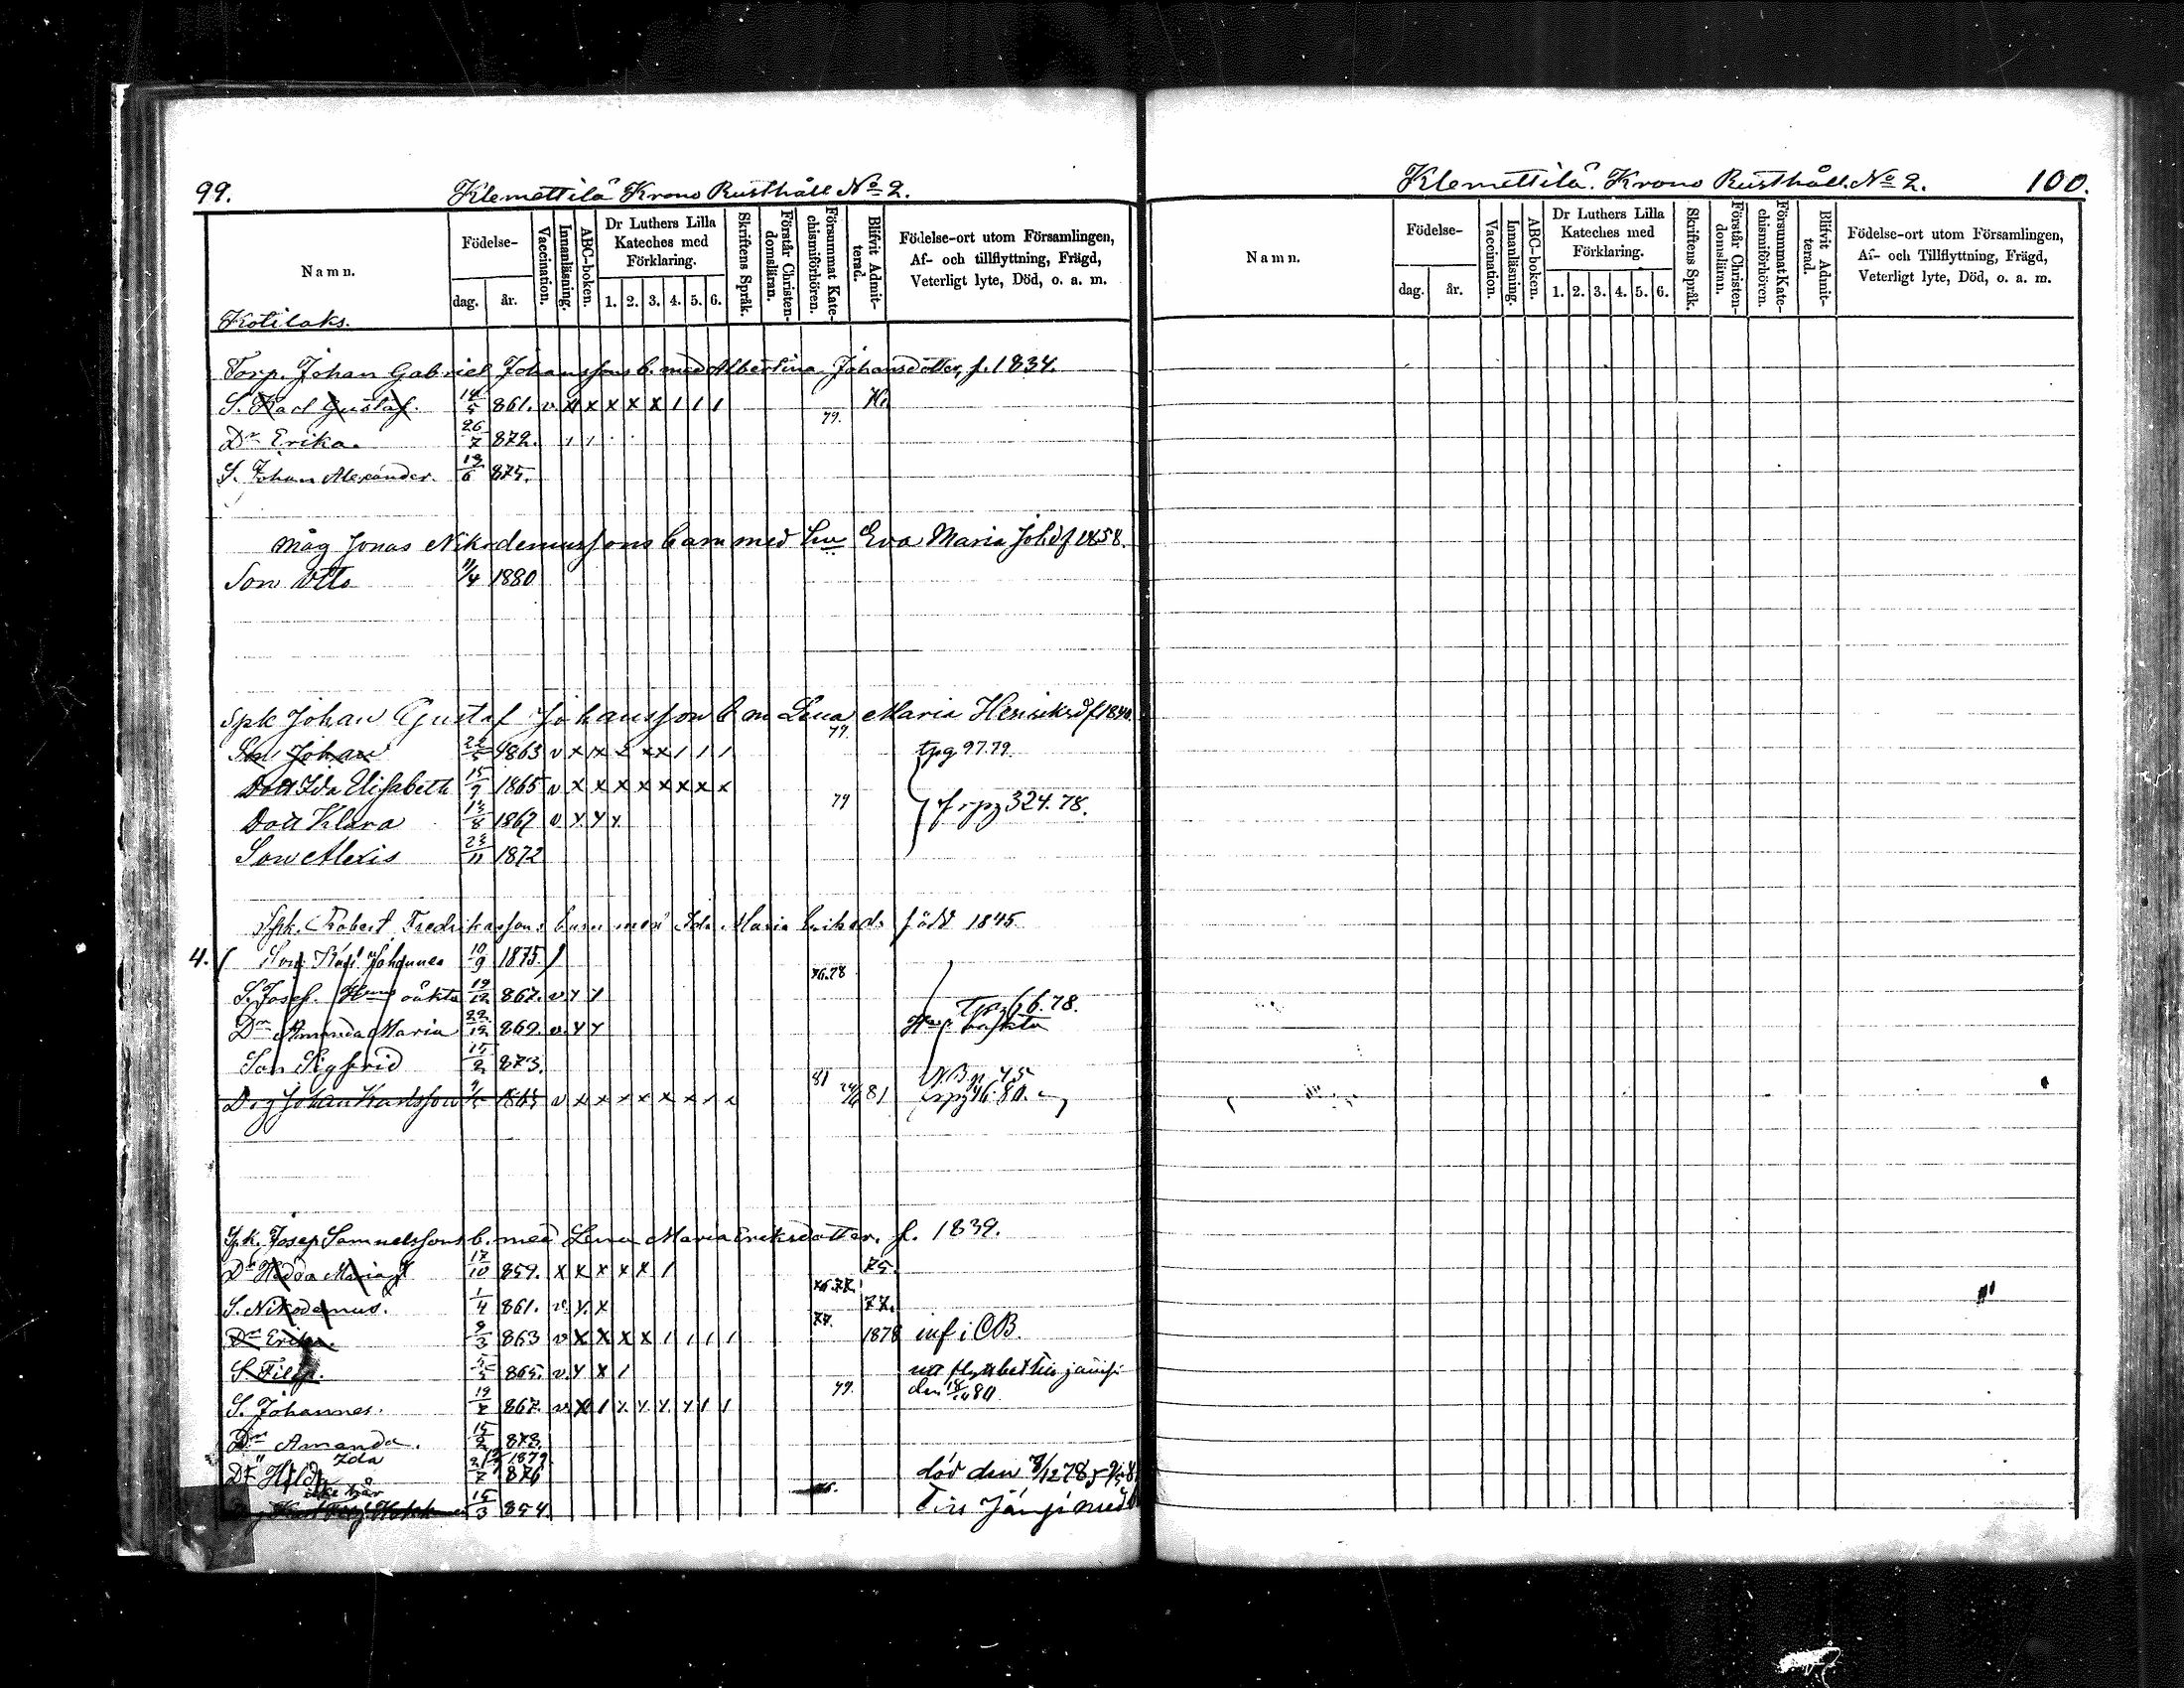 99.
Klemettilä Krono Rusthåll No 2.
Namn.
Födelse-
dag.
år.
Vaccination.
Innanläsning.
ABC-boken.
Dr Luthers Lilla Kateches med Förklaring.
1. 2. 3. 4. 5. 6.
Skriftens Språk.
Förstår Christendomsläran.
Försummat Katechismiförhören.
Blifvit Admitterad.
Födelse-ort utom Församlingen,
Af- och tillflyttning, Frägd,
Veterligt lyte, Död, o. a. m.
Kotilaks.
Torp. Johan Gabriel Johanssons b. med Albertina Johansdotter, f. 1834.
S. Karl Gustaf. 861. v. x x x x x 1 1 1
79.
Dr Erika. 26/7 872. 1 1
S. Johan Alexander. 13/6 875.
Måg Jonas Nikodemussons barn med hu Eva Maria Joh.d f 1858.
Son Otto 11/4 1880
Spk Johan Gustaf Johansson b m Lena Maria Henriksd f 1840.
79.
Son Johan 1863 v x x x x x 1 1 1 tpg 97.79.
Dott Ida Elisabeth 15/9 1865 v x x x x x x x x
79 f rpg 324.78.
Dott Klara 13/8 1867 v
Son Alexis 23/11 1872
Spk. Robert Fredrikssons barn med Ida Maria Eriksd. född 1845.
4. Son Karl Johannes 10/9 1875
76.78
S. Josef. oäkta 19/12 867. v
Tpg 66.78.
Dr Amanda Maria 22/12 869. v.
Son Sigfrid 15/2 873.
81
Drg Johan Karlsson 1865 v x x x x x 81 rpg 46.80.
Spk. Josep Samuelssons b. med Lena Maria Eriksdotter. f. 1839.
Dr Hedda Maria 17/10 859. x x x x x 1 75.
76.77.
S. Nikodemus. 1/4 861. v. x x 77.
Dr Erika. 9/3 863 v x x x x 1 1 1 1 1878 inf i CB.
S. Filip. 865. v. x x 1
79. den 80.
S. Johannes. 867.
Dr Amanda. 15/2 873.
Ida 1879
Dr Hilda 876 död den 8/12 78
15/3 854. Til Jämjö med
Klemettilä. Krono Rusthåll. No 2.
100.
Namn.
Födelse-
dag.
år.
Vaccination.
Innanläsning.
ABC-boken.
Dr Luthers Lilla Kateches med Förklaring.
1. 2. 3. 4. 5. 6.
Skriftens Språk.
Förstår Christendomslärnn.
Försummat Katechismiförhören.
Blifvit Admitterad.
Födelse-ort utom Församlingen,
Af- och Tillflyttning, Frägd,
Veterligt lyte, Död, o. a. m.